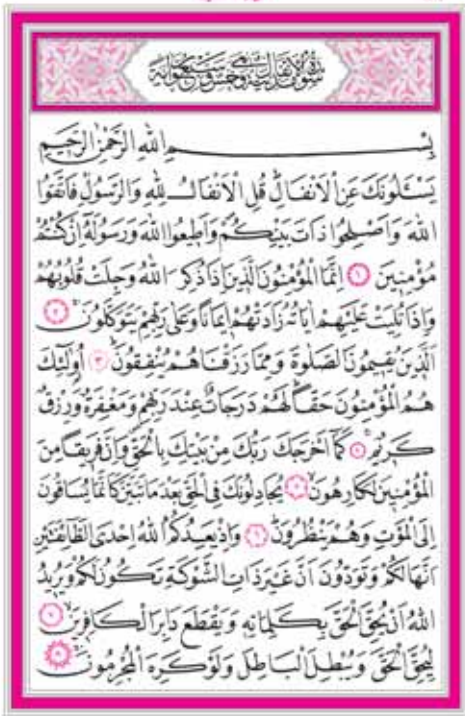 سورة الانفال مدنية وهى خمس وسبعون آية
بِسْمِ اللهِ الرَّحْمٰنِ الرَّحِيمِ
يَسْـَٔلُونَكَ عَنِ الْاَنْفَالِۜ قُلِ الْاَنْفَالُ لِلّٰهِ وَالرَّسُولِۚ فَاتَّقُوا
اللهَ وَاَصْلِحُوا ذَاتَ بَيْنِكُمْۖ وَاَطِيعُوا اللهَ وَرَسُولَهُٓ اِنْ كُنْتُمْ
مُؤْمِنِينَ ﴿١﴾ اِنَّمَا الْمُؤْمِنُونَ الَّذِينَ اِذَا ذُكِرَ اللهُ وَجِلَتْ قُلُوبُهُمْ
وَاِذَا تُلِيَتْ عَلَيْهِمْ اٰيَاتُهُ زَادَتْهُمْ اِيمَانًا وَعَلٰى رَبِّهِمْ يَتَوَكَّلُونَۚ ﴿٢﴾
اَلَّذِينَ يُقِيمُونَ الصَّلٰوةَ وَمِمَّا رَزَقْنَاهُمْ يُنْفِقُونَۜ ﴿٣﴾ اُو۬لٰٓئِكَ
هُمُ الْمُؤْمِنُونَ حَقًّاۜ لَهُمْ دَرَجَاتٌ عِنْدَ رَبِّهِمْ وَمَغْفِرَةٌ وَرِزْقٌ
كَرِيمٌۚ ﴿٤﴾ كَمَٓا اَخْرَجَكَ رَبُّكَ مِنْ بَيْتِكَ بِالْحَقِّۖ وَاِنَّ فَرِيقًا مِنَ
الْمُؤْمِنِينَ لَكَارِهُونَۙ ﴿٥﴾ يُجَادِلُونَكَ فِي الْحَقِّ بَعْدَ مَا تَبَيَّنَ كَاَنَّمَا يُسَاقُونَ
اِلَى الْمَوْتِ وَهُمْ يَنْظُرُونَۜ ﴿٦﴾ وَاِذْ يَعِدُكُمُ اللهُ اِحْدَى الطَّٓائِفَتَيْنِ
اَنَّهَا لَكُمْ وَتَوَدُّونَ اَنَّ غَيْرَ ذَاتِ الشَّوْكَةِ تَكُونُ لَكُمْ وَيُرِيدُ
اللهُ اَنْ يُحِقَّ الْحَقَّ بِكَلِمَاتِهِ وَيَقْطَعَ دَابِرَ الْكَافِرِينَۙ ﴿٧﴾
لِيُحِقَّ الْحَقَّ وَيُبْطِلَ الْبَاطِلَ وَلَوْ كَرِهَ الْمُجْرِمُونَۚ ﴿٨﴾